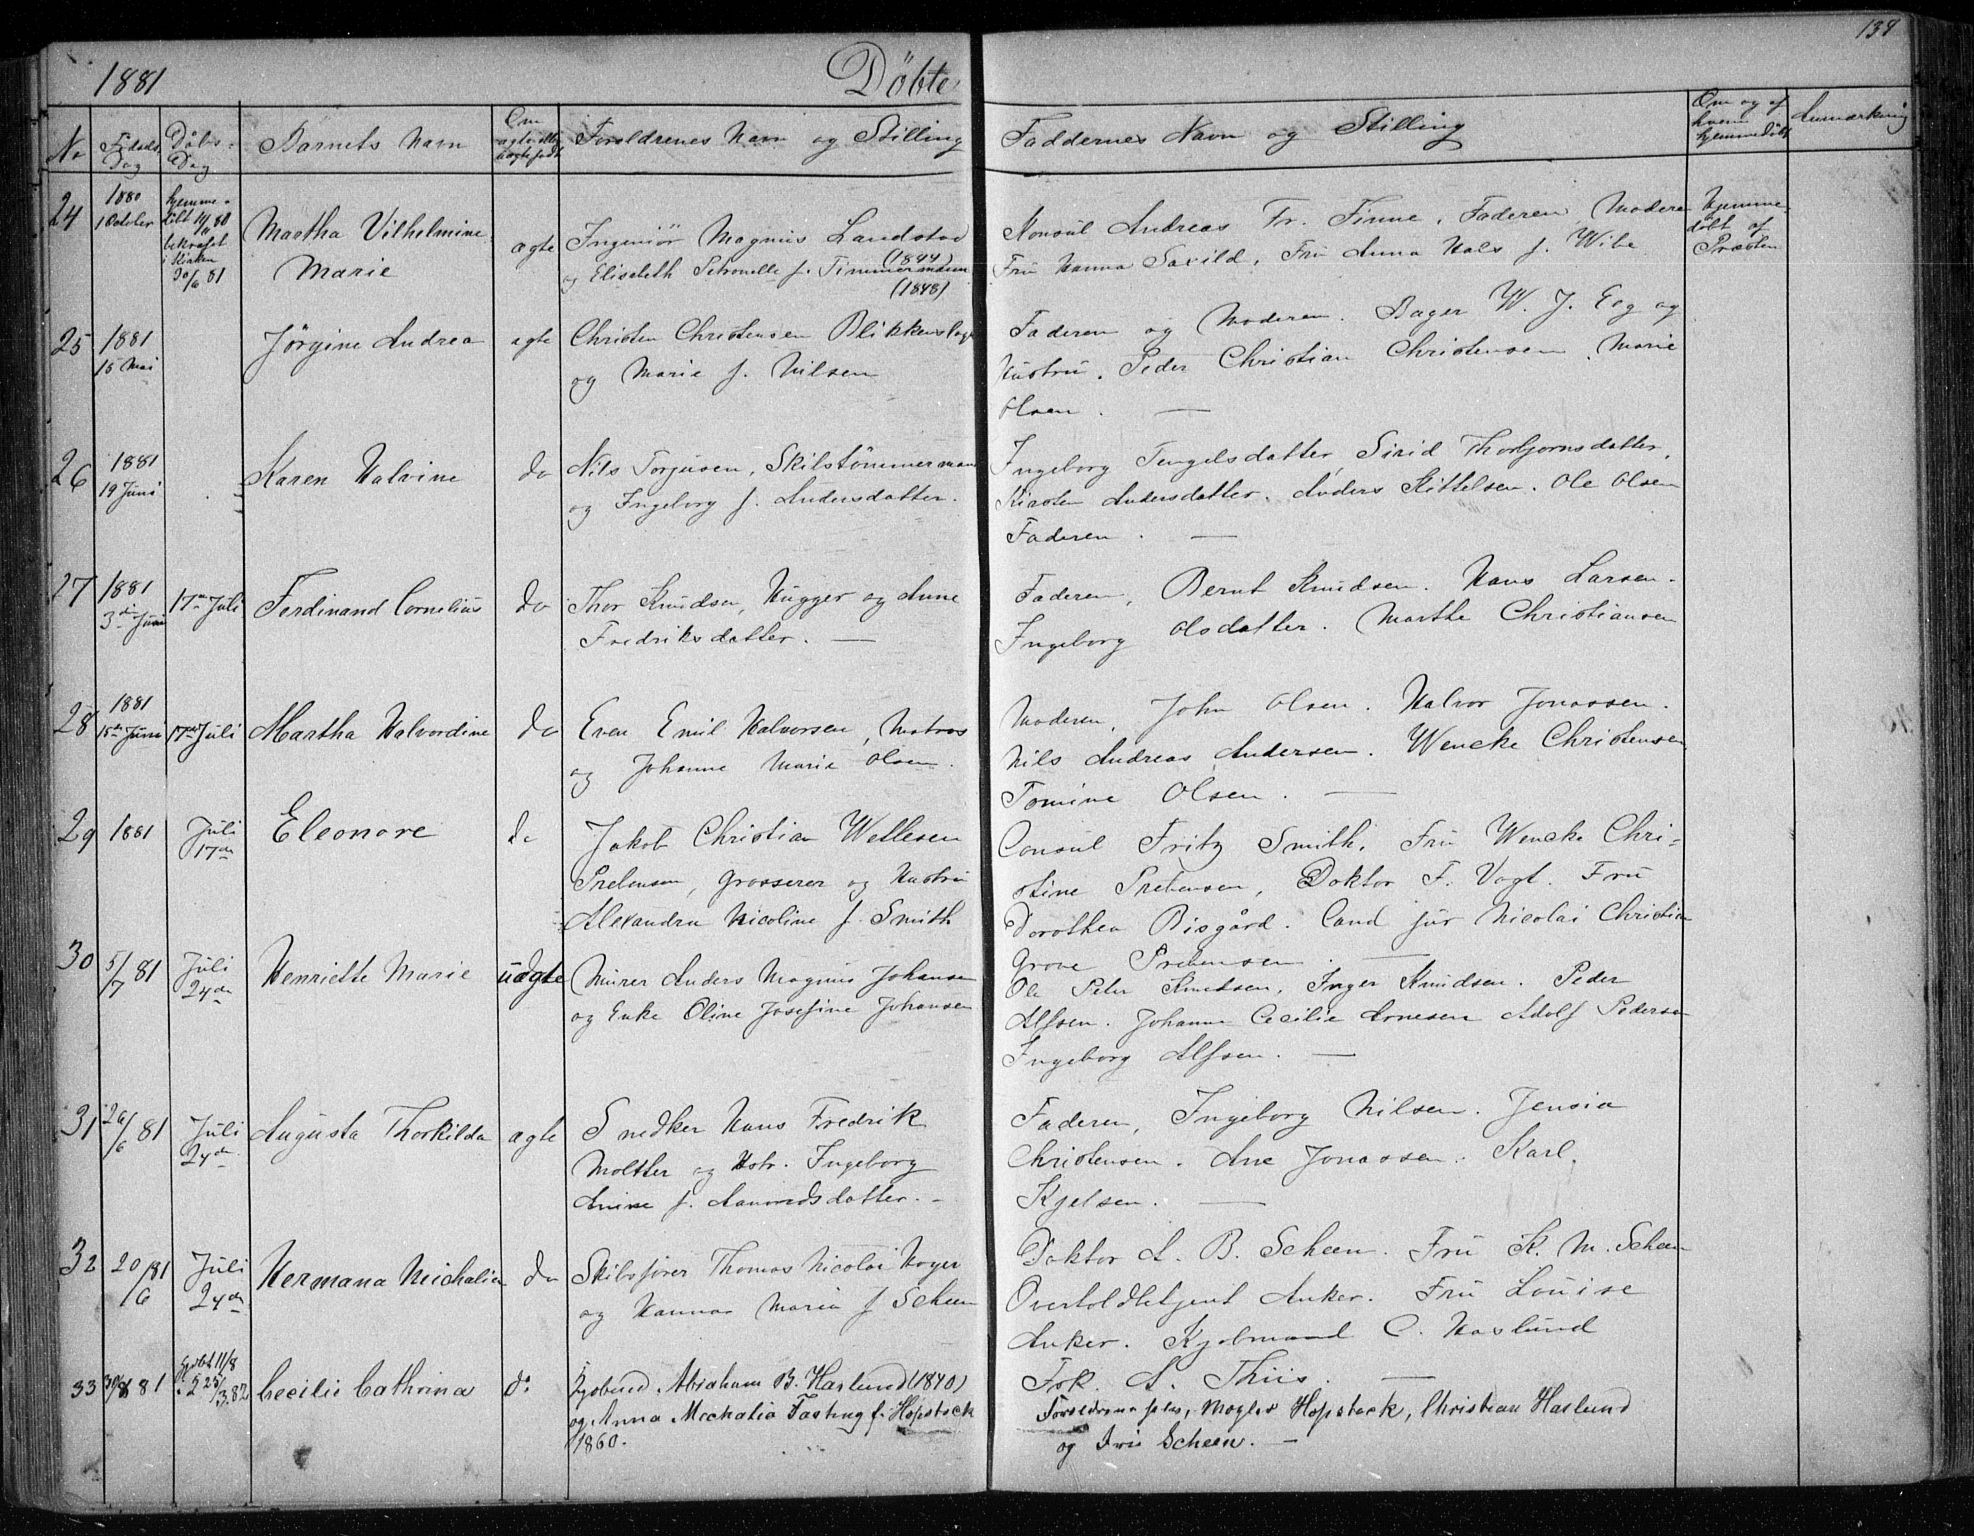 1881
Döbte
138
No
Fødsels Dag
Döbs- Dag
Barnets Navn
Om ægte eller uægte født
Foreldrenes Navn og Stilling
Faddernes Navn og Stilling
Om og af hvem hjemmedöbt
Anmærkning
24
1880
1 October
hjemme-
döbt
bekræft
i Kirken
30/6 81
Martha Vilhelmine
Marie
ægte
Ingeniör Magnus Landstad
(1844)
og Elisabeth Petronelle f. Timmermann
(1848)
Konsul Andreas Fr. Finne, Faderen, Moderen
Fru Hanna Saxild, Fru Anna Hals f. Wibe
Hjemme-
döbt af
Præsten
25
1881
15 Mai
Jörgine Andrea
ægte
Christen Christensen Blikkenslager
og Marie f. Nilsen
Faderen og Moderen. Bager W. J. Eeg og
Hustru. Peder Christian Christensen. Marie
Olsen. —
26
1881
19 Juni
Karen Halvine
do
Nils Torjusen, Skibstömmermand
og Ingeborg f. Andersdatter.
Ingeborg Tengelsdatter, Sirid Thorbjornsdatter,
Kirsten Andersdatter. Anders Kittelsen. Ole Olsen
Faderen. —
27
1881
3die Juni
17de Juli
Ferdinand Cornelius
do
Thor Knudsen, Hugger og Anne
Fredriksdatter. —
Faderen, Bernt Knudsen. Hans Larsen.
Ingeborg Olsdatter. Marthe Christiansen
28
1881
15de Juni
17de Juli
Martha Halvordine
do
Even Emil Halvorsen, Matros
og Johanne Marie Olsen.
Moderen, John Olsen. Halvor Jonassen.
Nils Andreas Andersen. Wencke Christensen
Tomine Olsen. —
29
1881
Juli
17de
Eleonore
do
Jakob Christian Wellesen
Prebensen, Grosserer og Hustru
Alexandra Nicoline f. Smith
Consul Fritz Smith. Fru Wencke Chri-
stine Prebensen, Doktor F. Vogt. Fru
Dorothea Bisgård. Cand jur Nicolai Christian
Grove Prebensen. —
30
5/7 81
Juli
24de
Henriette Marie
uægte
Murer Anders Magnus Johansen
og Enke Oline Josefine Johansen
Ole Peter Knudsen, Inger Knudsen. Peder
Alfsen. Johanne Cecilie Arnesen Adolf Pedersen
Ingeborg Alfsen. —
31
26/6 81
Juli
24de
Augusta Thorkilda
ægte
Snedker Hans Fredrik
Moltter og Hstr. Ingeborg
Anine f. Aanundsdatter. -
Faderen, Ingeborg Nilsen. Jensia
Christensen. Ane Jonassen. Karl
Kjelsen. —
32
20/6 81
Juli
24de
Hermana Michaline
do
Skibsförer Thomas Nicolai Høyer
og Hanna Maria f Scheen
Doktor A. B. Scheen. Fru K. M. Scheen
Overtoldbetjent Anker. Fru Louise
Anker. Kjøbmand C. Haslund
Frk. A. Thiis. —
33
30/8 81
11/8
25/3 82
Cecilie Cathrina
do
Kjøbmd. Abraham B. Haslund (1840)
og Anna Michalia Tasting f. Hopstock
1860.
Forældrene selv, Mægler Hopstock, Christian Haslund
og Fru Scheen. —